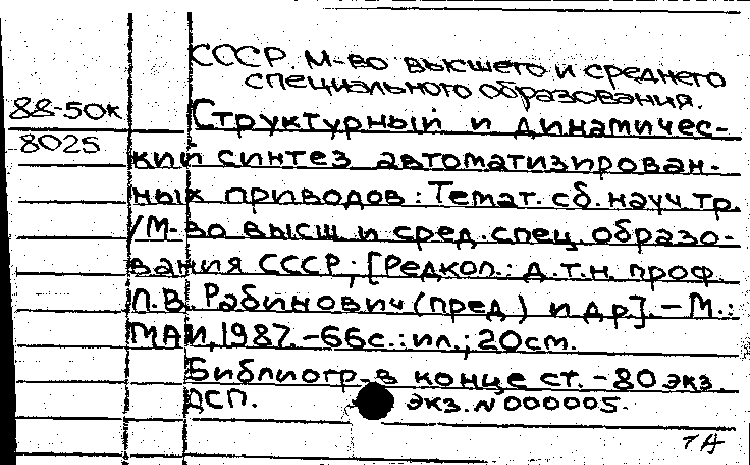 СССР. М-во высшего и среднего
специального образования.
88-50к
8025
Структурный и динамичес-
кий синтез автоматизирован-
ных приводов: Темат. сб. науч. тр.
/М-во высш и сред. спец. образо-
вания СССР; [Редкол.: д.т.н. проф.
Л.В. Рабинович (пред.) и др]. – М.:
МАИ, 1987. – 66с.: ил.; 20см.
Библиогр. в конце ст. – 80 экз.
ДСП. экз. N 000005.